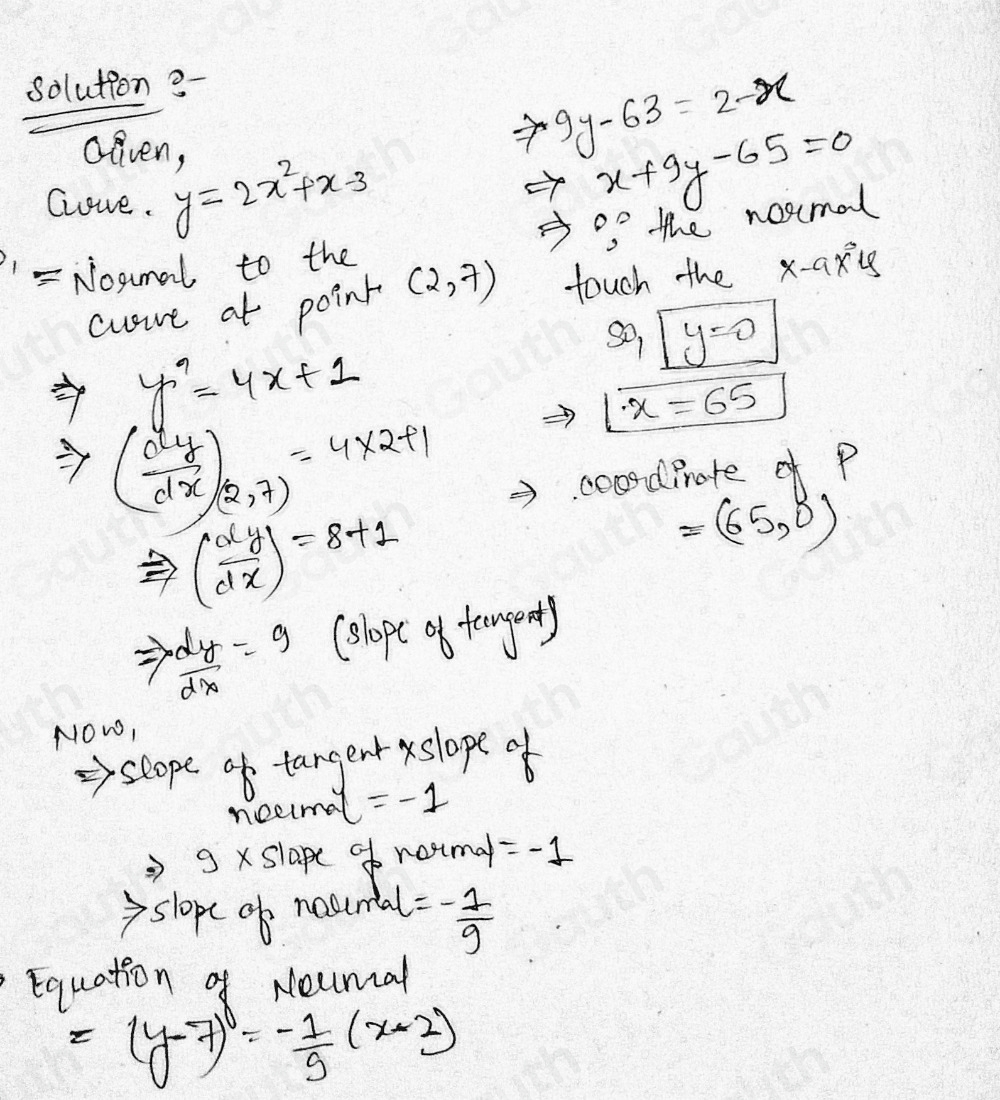 Solution :-
Given,
Curve. y = 2x²+x-3
= Normal to the
curve at point (2,7)
⇒ y' = 4x+1
⇒ (dy/dx)(2,7) = 4×2+1
⇒ (dy/dx) = 8+1
⇒ dy/dx = 9 (slope of tangent)
Now,
⇒ slope of tangent × slope of
normal = -1
⇒ 9 × slope of normal = -1
⇒ slope of normal = -1/9
Equation of Normal
= (y-7) = -1/9 (x-2)
⇒ 9y-63 = 2-x
⇒ x+9y-65=0
⇒ ∵ the normal
touch the x-axis
so, y=0
⇒ x = 65
⇒ coordinate of P
= (65,0)